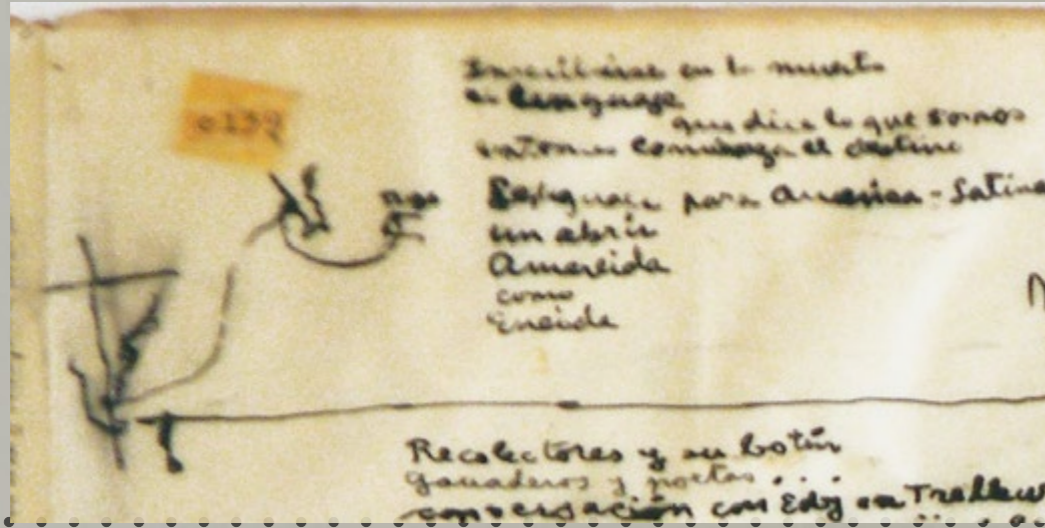 c132
en la muerte
el lenguaje
que dice lo que somos
entonces comienza el destino
para America-Latina
un abrir
Amereida
como
Eneida
Recolectores y su botín
ganaderos y poetas...
conversación con Edy en